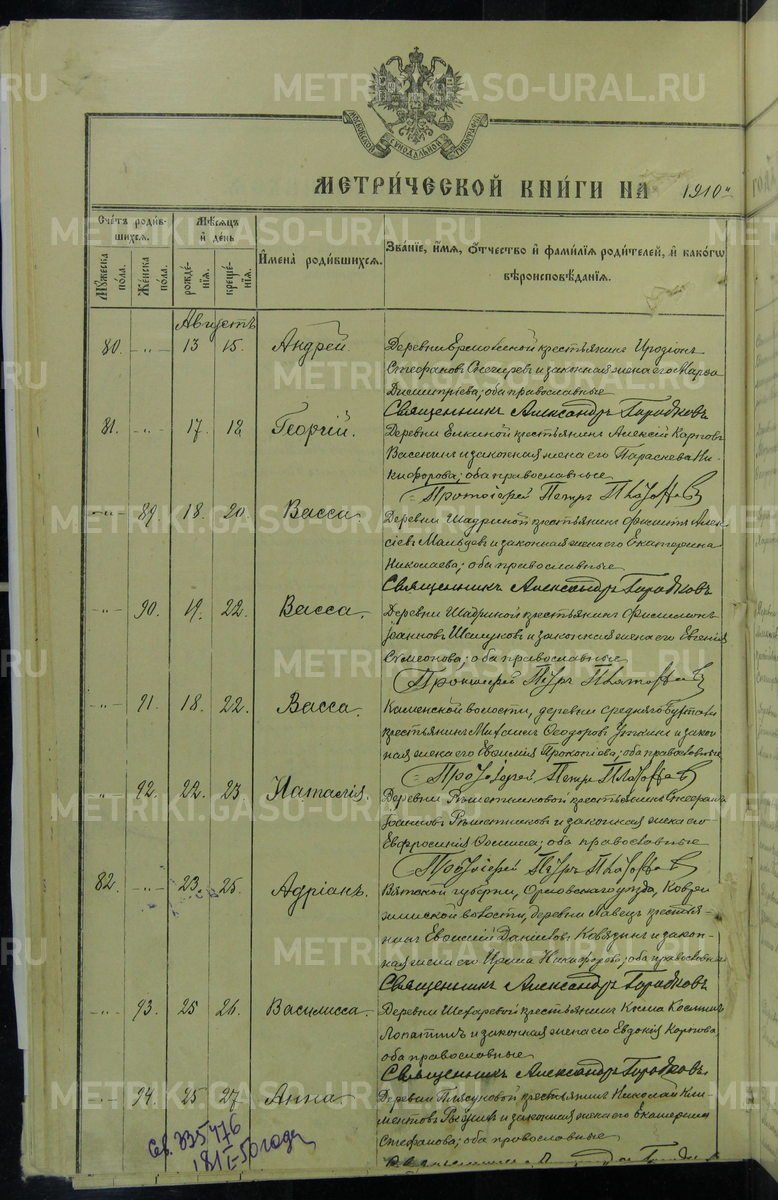 МОСКОВСКОЙ СѴНОДАЛЬНОЙ ТИПОГРАФІИ
МЕТРИ́ЧЕСКОЙ КНИ́ГИ НА 1910 г.
Сче́тъ роди́вшихся.
Мѹ́жеска по́ла.
Же́нска по́ла.
Мѣ́сяцъ и҆ де́нь
рожде́нїѧ.
креще́нїѧ.
И҆мена̀ роди́вшихся.
Зва́нїе, и҆́мѧ, ѻ҆́тчество и҆ фами́лїѧ роди́телей, и҆ како́гѡ вѣроисповѣ́данїѧ.
Августъ
80. -"- 13 15. Андрей.
Деревни крестьянинъ Иродіонъ
Стефановъ и законная жена его Марѳа
Димитріева; оба православные
Священникъ Александръ
81. -"- 17. 18. Георгій.
Деревни Елкиной крестьянинъ Алексій Карповъ
и законная жена его Параскева Ни-
кифорова; оба православные
Протоіерей Петръ
-"- 89. 18. 20. Васса.
Деревни Шадриной крестьянинъ Алек-
сіевъ Мальцевъ и законная жена его Екатерина
Николаева; оба православные
Священникъ Александръ
-"- 90. 19. 22. Васса.
Деревни Шадриной крестьянинъ Филимонъ
Іоанновъ и законная жена его Евгенія
Сѵмеонова; оба православные
Протоіерей Петръ
-"- 91. 18. 22. Васса.
Каменской волости, деревни Средняго
крестьянинъ Михаилъ Ѳеодоровъ Уткинъ и закон-
ная жена его Евѳимія Прокопіева; оба православные
Протоіерей Петръ
" 92. 22. 23 Наталія.
Деревни Рѣшетниковой крестьянинъ Стефанъ
Іоанновъ Рѣшетниковъ и законная жена его
Евфросинія Ѳомина; оба православные
Протоіерей Петръ
82. -"- 23. 25. Адріанъ.
Вятской губерніи, Орловскаго уѣзда,
волости, деревни крестья-
нинъ Евѳимій Даніиловъ Ковязинъ и закон-
ная жена его Ирина Никифорова; оба православные
Священникъ Александръ
-"- 93. 25 26. Василисса.
Деревни крестьянинъ Косминъ
Лопатинъ и законная жена его Евдокія Карпова,
оба православные
Священникъ Александръ
-"- 94. 25 27. Анна
Деревни крестьянинъ Николай Кли-
ментовъ и законная жена его Екатерина
Стефанова; оба православные
Св. 335476
18 I-50 года
METRIKI.GASO-URAL.RU